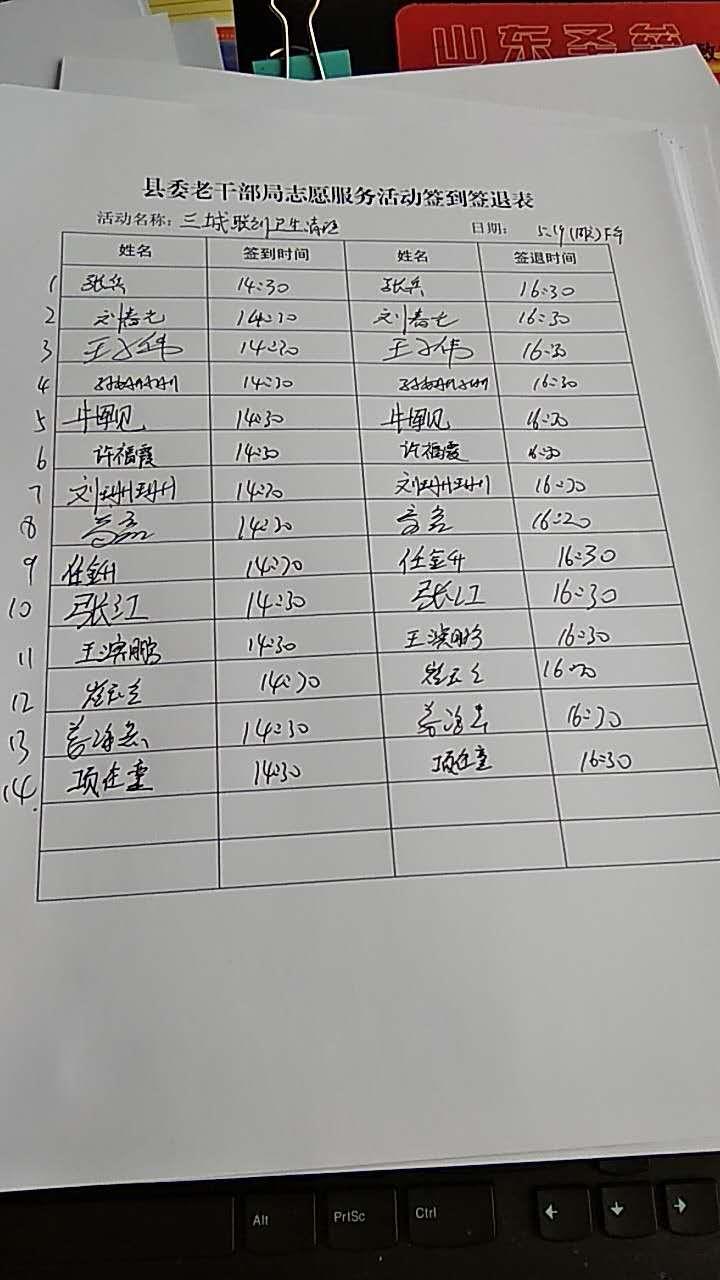 山东圣
县委老干部局志愿服务活动签到签退表
活动名称：三城联创卫生清理 日期：5.19
姓名 签到时间 姓名 签退时间
1 张兵 14:30 张兵 16:30
2 刘春 14:30 刘春 16:30
3 王 伟 14:30 王 伟 16:30
4 14:30 16:30
5 14:30 16:30
6 许福霞 14:30 许福霞 16:30
7 刘珊珊 14:30 刘珊珊 16:30
8 14:30 16:20
9 任金升 14:30 任金升 16:30
10 张江 14:30 张江 16:30
11 王滨鹏 14:30 王滨鹏 16:30
12 崔 14:30 崔 16:30
13 14:30 16:30
14. 项在童 14:30 项在童 16:30
Alt PrtSc Ctrl ← ↓ →